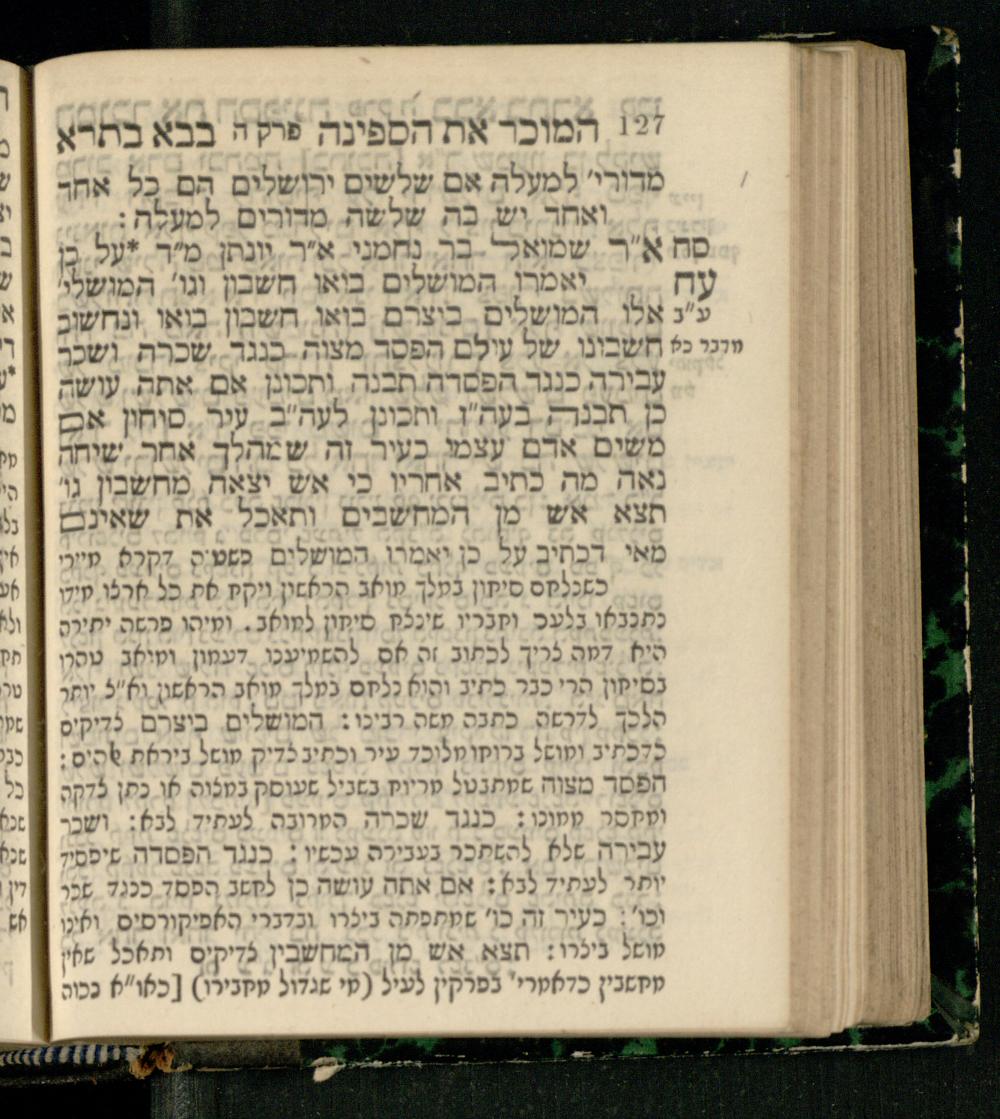 127 המוכר את הספינה פרק ה בבא בתרא
מדורי׳ למעלה אם שלשים ירושלים הם כל אחד
ואחד יש בה שלשה מדורים למעלה:
סח א״ר שמואל בר נחמני א״ר יונתן מ״ד *על כן
עח יאמרו המושלים בואו חשבון וגו׳ המושלי׳
ע״ב אלו המושלים ביצרם בואו חשבון בואו ונחשוב
מדבר כא חשבונו של עולם הפסד מצוה כנגד שכרה ושכר
עבירה כנגד הפסדה תבנה ותכונן אם אתה עושה
כן תבנה בעה״ז ותכונן לעה״ב עיר סיחון אם
משים אדם עצמו כעיר זה שמהלך אחר שיחה
נאה מה כתיב אחריו כי אש יצאת מחשבון גו׳
תצא אש מן המחשבים ותאכל את שאינם
מאי דכתיב על כן יאמרו המושלים דקרא מיירי
כשנלחם סיחון במלך מואב הראשון ויקח את כל ארצו מידו
כתנבאו בלעם וחבריו שינלח סיחון למואב. ומיהו פרשה יתירה
היא דמה צריך לכתוב זה אם להשמיענו דעמון ומואב טהרו
בסיחון הרי כבר כתיב והוא נלחם במלך מואב הראשון וא״צ יותר
הלכך לדרשה כתבה משה רבינו: המושלים ביצרם צדיקים
כדכתיב ומושל ברוחו מלוכד עיר וכתיב צדיק מושל ביראת אלהים:
הפסד מצוה שמתבטל מריוח בשביל שעוסק במצוה או נתן לצדקה
ומחסר ממונו: כנגד שכרה המרובה לעתיד לבא: ושכר
עבירה שלא להשתכר בעבירה עכשיו: כנגד הפסדה שיפסיד
יותר לעתיד לבא: אם אתה עושה כן לחשב הפסד כנגד שכר
וכו׳: כעיר זה כו׳ שמתפתה ביצרו ובדברי האפיקורסים ואינו
מושל ביצרו: תצא אש מן המחשבין צדיקים ותאכל שאין
מחשבין כדאמרי׳ בפרקין לעיל (מי שגדול מחבירו) [כאו״א נכוה